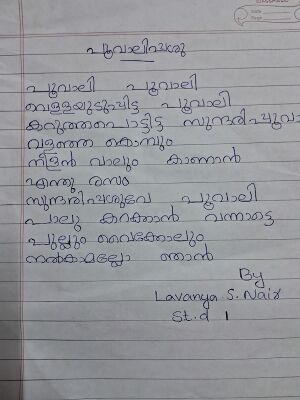 പൂവാലിപശു
പൂവാലി പൂവാലി
വെള്ളയുടുപ്പിട്ട പൂവാലി
കറുത്തപൊട്ടിട്ട സുന്ദരിപ്പൂവാ
വളഞ്ഞ കൊമ്പും
നീളൻ വാലും കാണാൻ
എന്തു രസം
സുന്ദരിപശുവേ പൂവാലി
പാലു കറക്കാൻ വന്നാട്ടെ
പുല്ലും വൈക്കോലും
നൽകാമല്ലോ ഞാൻ
By
Lavanya S. Nair
St.d 1